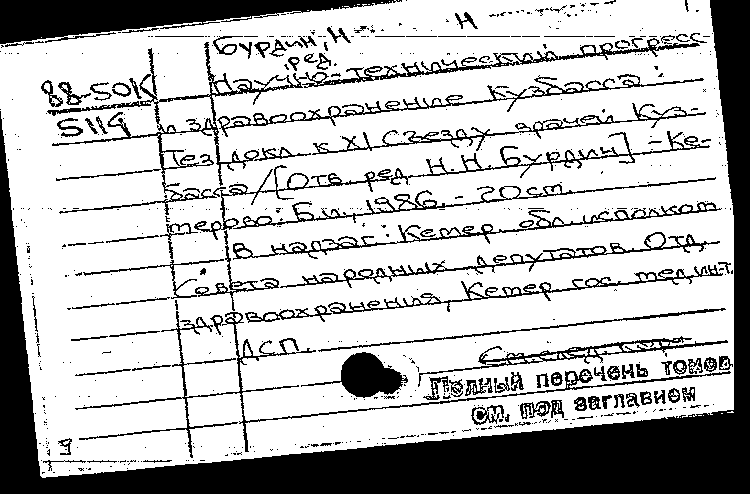 Бурдин, Н Н
ред.
88-50К Научно-технический прогресс
5119 и здравоохранение Кузбасса:
Тез. докл. к XI съезду врачей Куз-
басса / [Отв. ред. Н.Н. Бурдин] - Ке-
мерово: Б.и., 1986. - 20 см.
В надзаг.: Кемер. обл. исполком
Совета народных депутатов. Отд.
здравоохранения, Кемер. гос. мед. ин-т.
ДСП.
См. след. карт.
Полный перечень томов
см. под заглавием